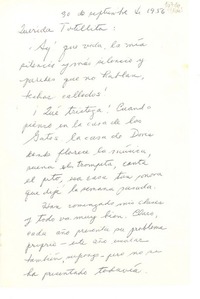 30 de septiembre de 1956
Querida Totillita:
¡Ay! que vida, lo más
silencio y más silencio y
paredes que no hablan,
callados!
¡Qué tristeza! Cuando
pienso en la casa de los
Gatos, la casa de
donde florece la música,
suena la trompeta, canta
el pito, esa casa tan
que dejé la semana pasada.
Han comenzado mis clases
y todo va muy bien. Claro,
cada año presenta su problema
propio — este año
también, supongo — pero no se
ha presentado todavía.